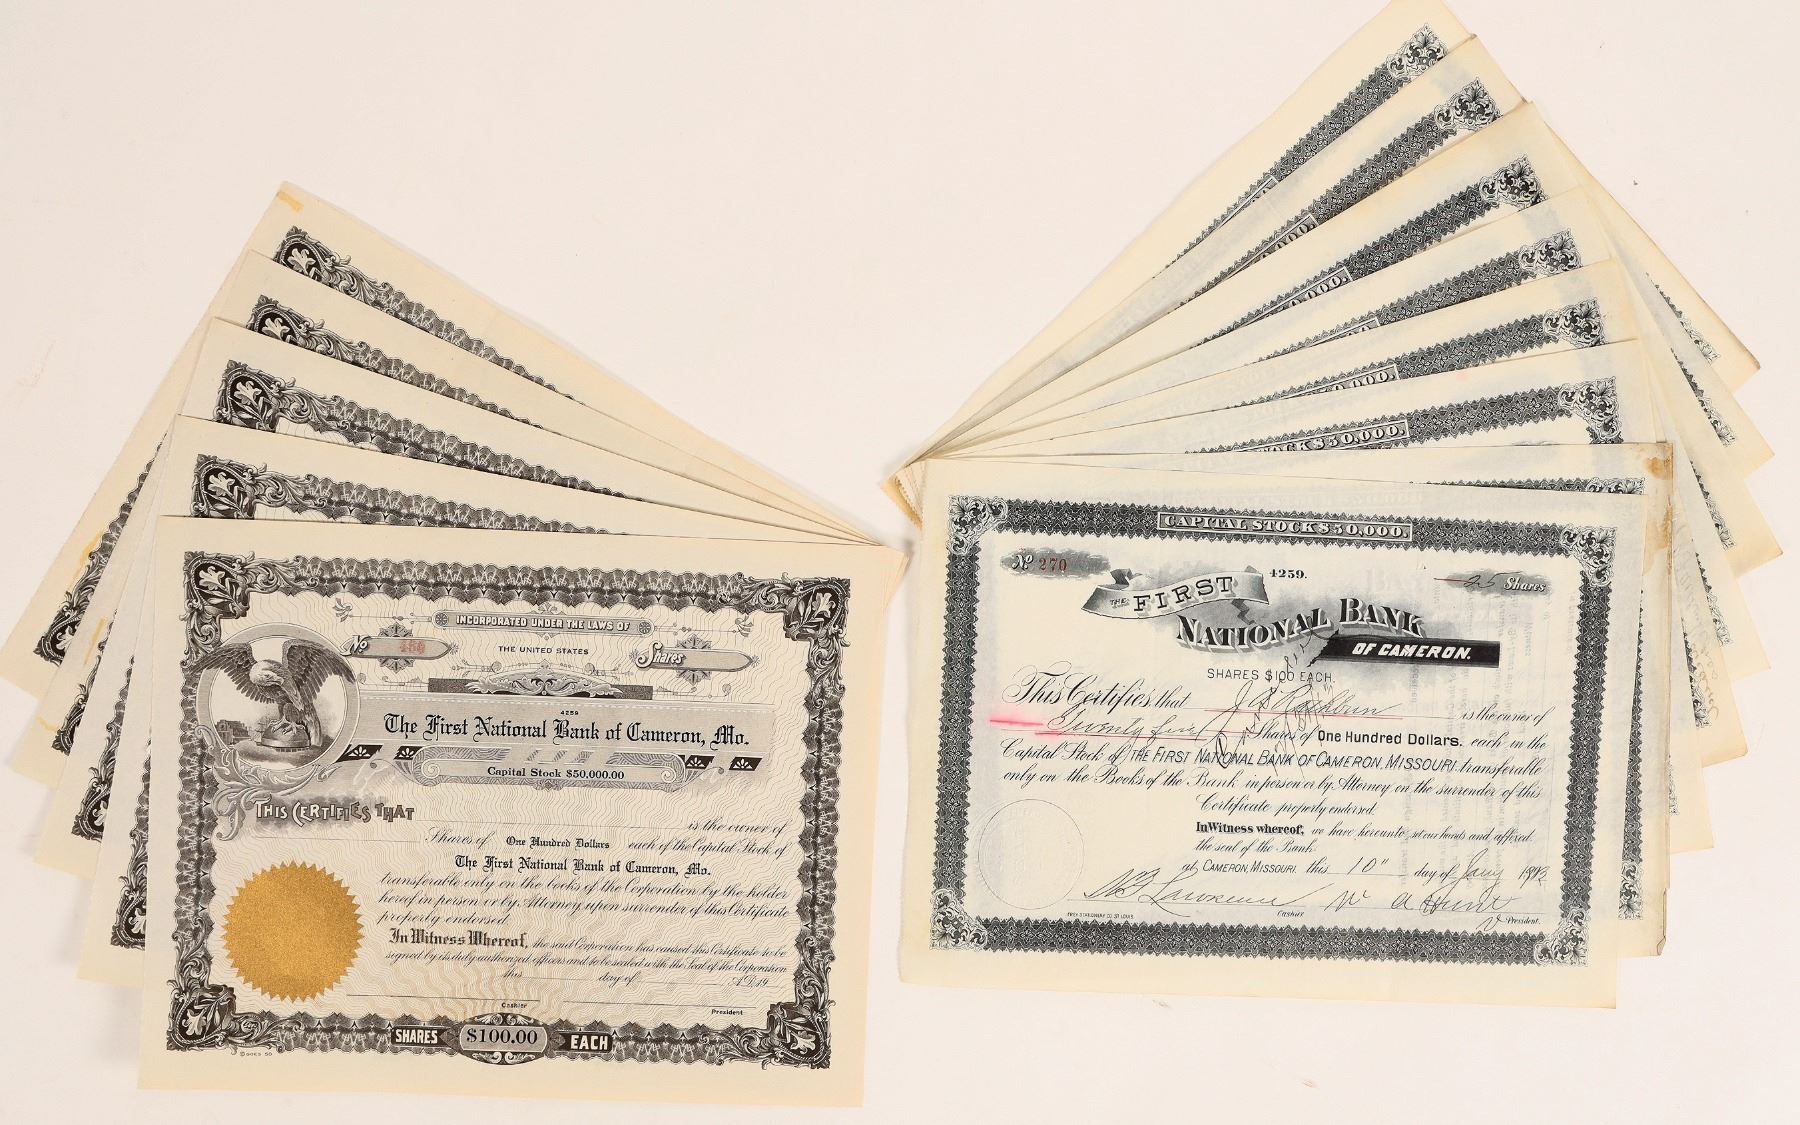 INCORPORATED UNDER THE LAWS OF
No 456
THE UNITED STATES
Shares
4259
The First National Bank of Cameron, Mo.
Capital Stock $50,000.00
THIS CERTIFIES THAT
is the owner of
Shares of One Hundred Dollars each of the Capital Stock of
The First National Bank of Cameron, Mo.
transferable only on the books of the Corporation by the holder
hereof in person or by Attorney, upon surrender of this Certificate
properly endorsed.
In Witness Whereof, the said Corporation has caused this Certificate to be
signed by its duly authorized officers and to be sealed with the Seal of the Corporation
this day of A.D. 19
Cashier
President
SHARES $100.00 EACH
© GOES 50
CAPITAL STOCK $50,000.
No 270
4259.
25 Shares
THE FIRST
NATIONAL BANK
OF CAMERON.
SHARES $100 EACH.
This Certifies that J S Rathbun is the owner of
Twenty five Shares of One Hundred Dollars. each in the
Capital Stock of THE FIRST NATIONAL BANK OF CAMERON, MISSOURI. transferable
only on the Books of the Bank in person or by Attorney on the surrender of this
Certificate properly endorsed.
In Witness whereof, we have hereunto set our hands and affixed
the seal of the Bank
at CAMERON, MISSOURI. this 10" day of Jany
Lawrence
Cashier
President.
$50,000.
STOCK $50,000.